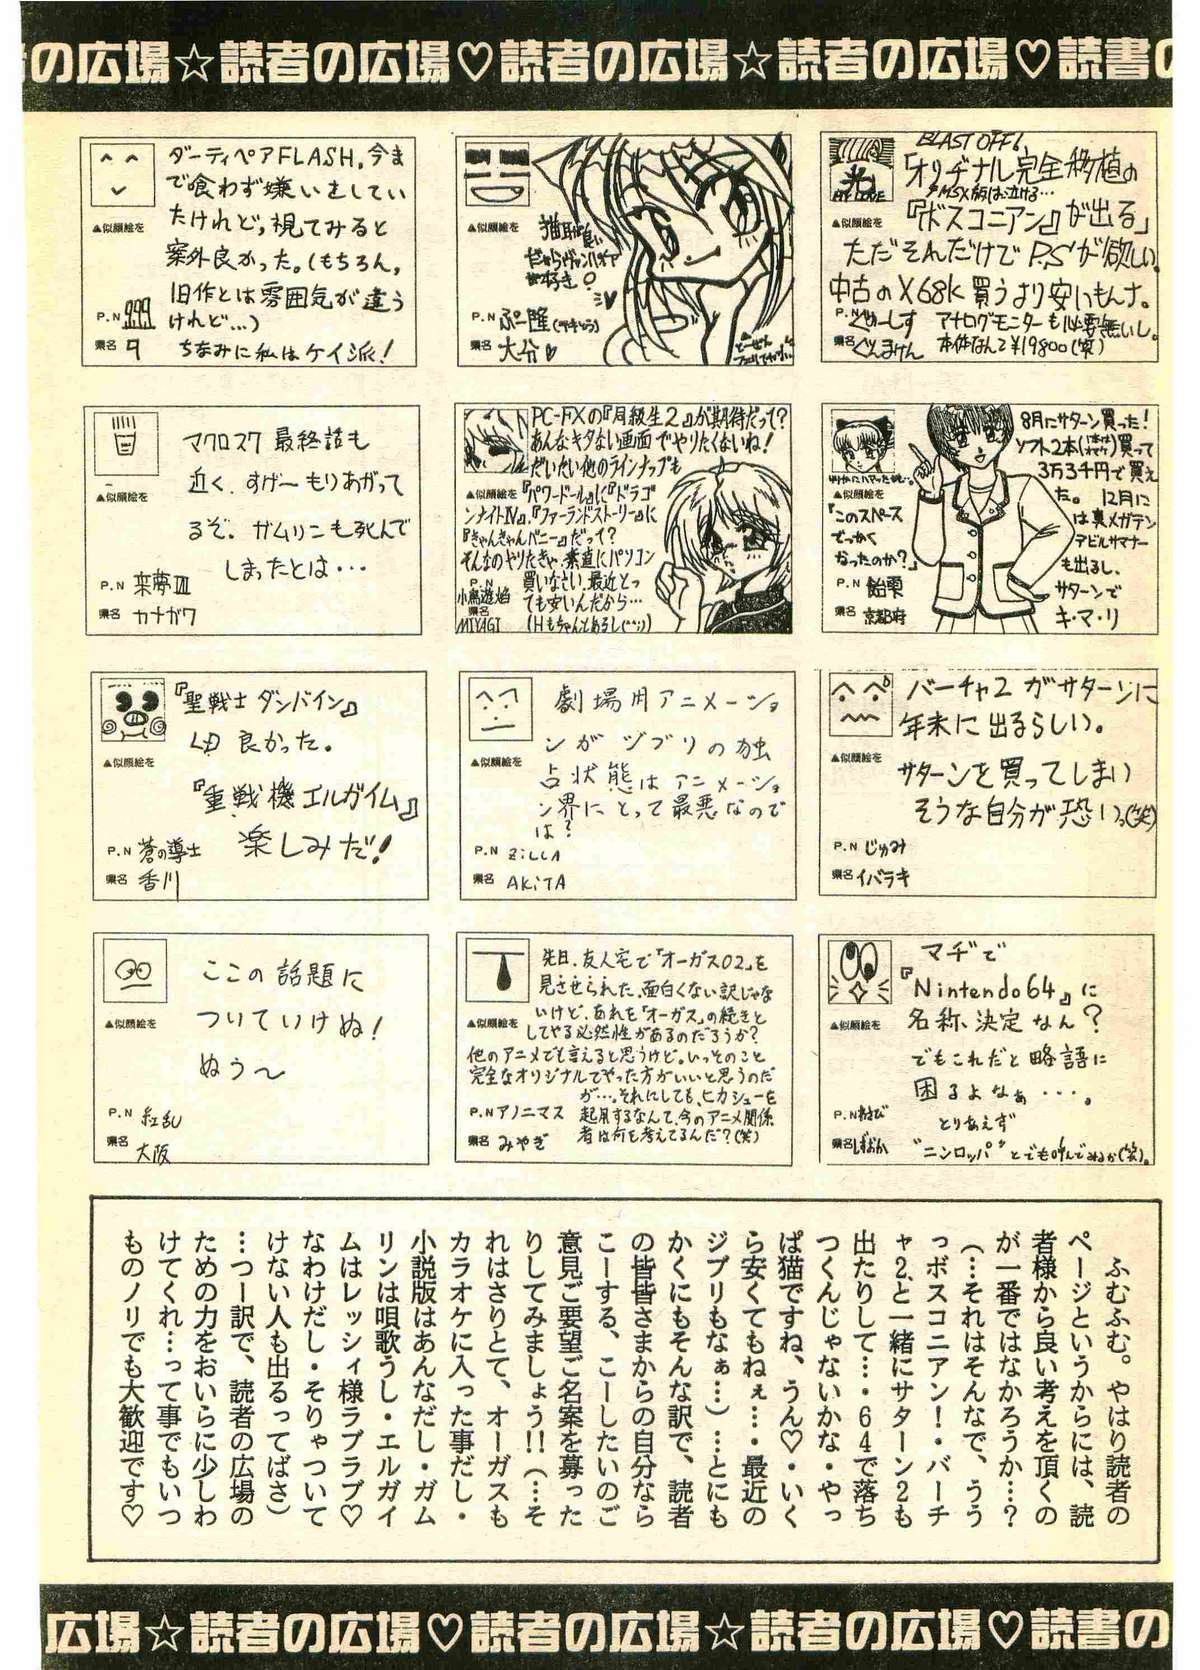 の広場☆読者の広場♡読者の広場☆読者の広場♡読書の
ダーティペアFLASH、今ま
で喰わず嫌いをしてい
たけれど、視てみると
案外良かった。(もちろん、
旧作とは雰囲気が違う
けれど…)
ちなみに私はケイ派!
▲似顔絵を
P.N
県名
▲似顔絵を
猫耳が良い
P.N ぷー隆
県名 大分
BLAST OFF!
『オリヂナル完全移植の
※MSX版は泣ける…
『ボスコニアン』が出る」
ただそんだけでP.Sが欲しい。
中古のX68k買うより安いもんナ。
アナログモニターも必要無いし。
本体なんて¥19800(笑)
MY LOVE
▲似顔絵を
P.N ぐりーしす
県名 ぐんまけん
マクロス7 最終話も
近く、すげーもりあがって
るぞ。ガムリンも死んで
しまったとは・・・
▲似顔絵を
P.N 来夢Ⅲ
県名 カナガワ
PC-FXの『同級生2』が期待だって?
あんなキタない画面でやりたくないね!
だいたい他のラインナップも
『パワードール』に『ドラゴ
ンナイトⅣ』、『ファーランドストーリー』に
『きゃんきゃんバニー』だって?
そんなのヤリたきゃ、素直にパソコン
買いなさい、最近とっ
ても安いんだから…
(Hもちゃんとあるし(^^;))
▲似顔絵を
P.N 小鳥遊焔
県名 MIYAGI
8月にサターン買った!
ソフト2本買って
3万3千円で買え
た。12月に
は真メガテン
デビルサマナー
も出るし、
サターンで
キ・マ・リ
▲似顔絵を
『このスペース
でっかく
なったのか?』
P.N 飴栗
県名 京都府
『聖戦士 ダンバイン』
LD 良かった。
『重戦機エルガイム』
楽しみだ!
▲似顔絵を
P.N 蒼の導士
県名 香川
劇場用アニメーショ
ンがジブリの独
占状態はアニメーショ
ン界にとって最悪なので
は?
▲似顔絵を
P.N ZiLLA
県名 AKiTA
バーチャ2がサターンに
年末に出るらしい。
サターンを買ってしまい
そうな自分が恐いっ(笑)
▲似顔絵を
P.N じゅみ
県名 イバラキ
ここの話題に
ついていけぬ!
ぬぅ〜
▲似顔絵を
P.N 紅乱
県名 大阪
先日、友人宅で『オーガス02』を
見させられた、面白くない訳じゃな
いけど、あれを『オーガス』の続きと
してやる必然性があるのだろうか?
他のアニメでも言えると思うけど。いっそのこと
完全なオリジナルでやった方がいいと思うのだ
が…。それにしても、ヒカシューを
起用するなんて、今のアニメ関係
者は何を考えてるんだ?(笑)
▲似顔絵を
P.N アノニマス
県名 みやぎ
マヂで
『Nintendo64』に
名称決定なん?
でもこれだと略語に
困るよなぁ・・・・。
とりあえず
"ニンロッパ"とでも呼んでみるか(笑)。
▲似顔絵を
P.N わさび
県名 しずおか
ふむふむ。やはり読者の
ページというからには、読
者様から良い考えを頂くの
が一番ではなかろうか…?
(…それはそんなで、うう
っボスコニアン!・バーチ
ャ2、と一緒にサターン2も
出たりして…・64で落ち
つくんじゃないかな・やっ
ぱ猫ですね、うん♡・いく
ら安くてもねぇ…・最近の
ジブリもなぁ…)…とにも
かくにもそんな訳で、読者
の皆皆さまからの自分なら
こーする、こーしたいのご
意見ご要望ご名案を募った
りしてみましょう!!(…そ
れはさりとて、オーガスも
カラオケに入った事だし・
小説版はあんなだし・ガム
リンは唄歌うし・エルガイ
ムはレッシィ様ラブラブ♡
なわけだし・そりゃついて
けない人も出るってばさ)
…つー訳で、読者の広場の
ための力をおいらに少しわ
けてくれ…って事でもいつ
ものノリでも大歓迎です♡
広場☆読者の広場♡読者の広場☆読者の広場♡読書の